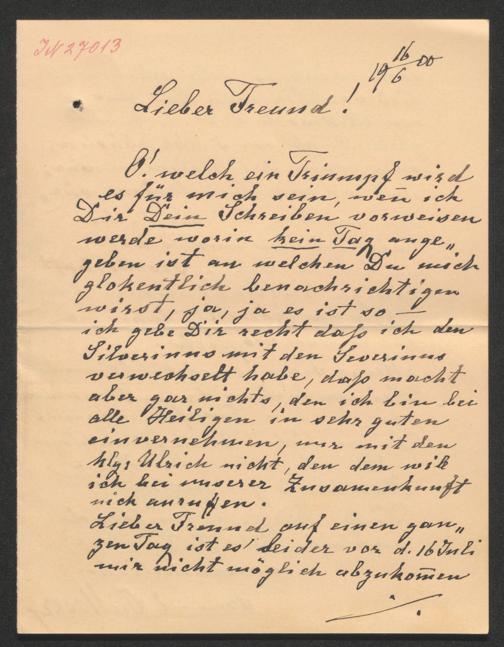 IN 27013
19 16/6 00
Lieber Freund!
O! welch ein Triumpf wird
es für mich sein, wen̄ ich
Dir Dein Schreiben vorweisen
werde worin kein Tag ange„
geben ist an welchen Du mich
glokentlich benachrichtigen
wirst, ja, ja es ist so —
ich gebe Dir recht daß ich den
Silverinus mit den Severinus
verwechselt habe, daß macht
aber gar nichts, den ich bin bei
alle Heiligen in sehr guten
einvernehmen, nur mit den
hlg: Ulrich nicht, den dem will
ich bei unserer Zusamenkunft
nich anrufen.
Lieber Freund auf einen gan„
zen Tag ist es leider vor d. 16 Juli
mir nicht möglich abzukom̄en